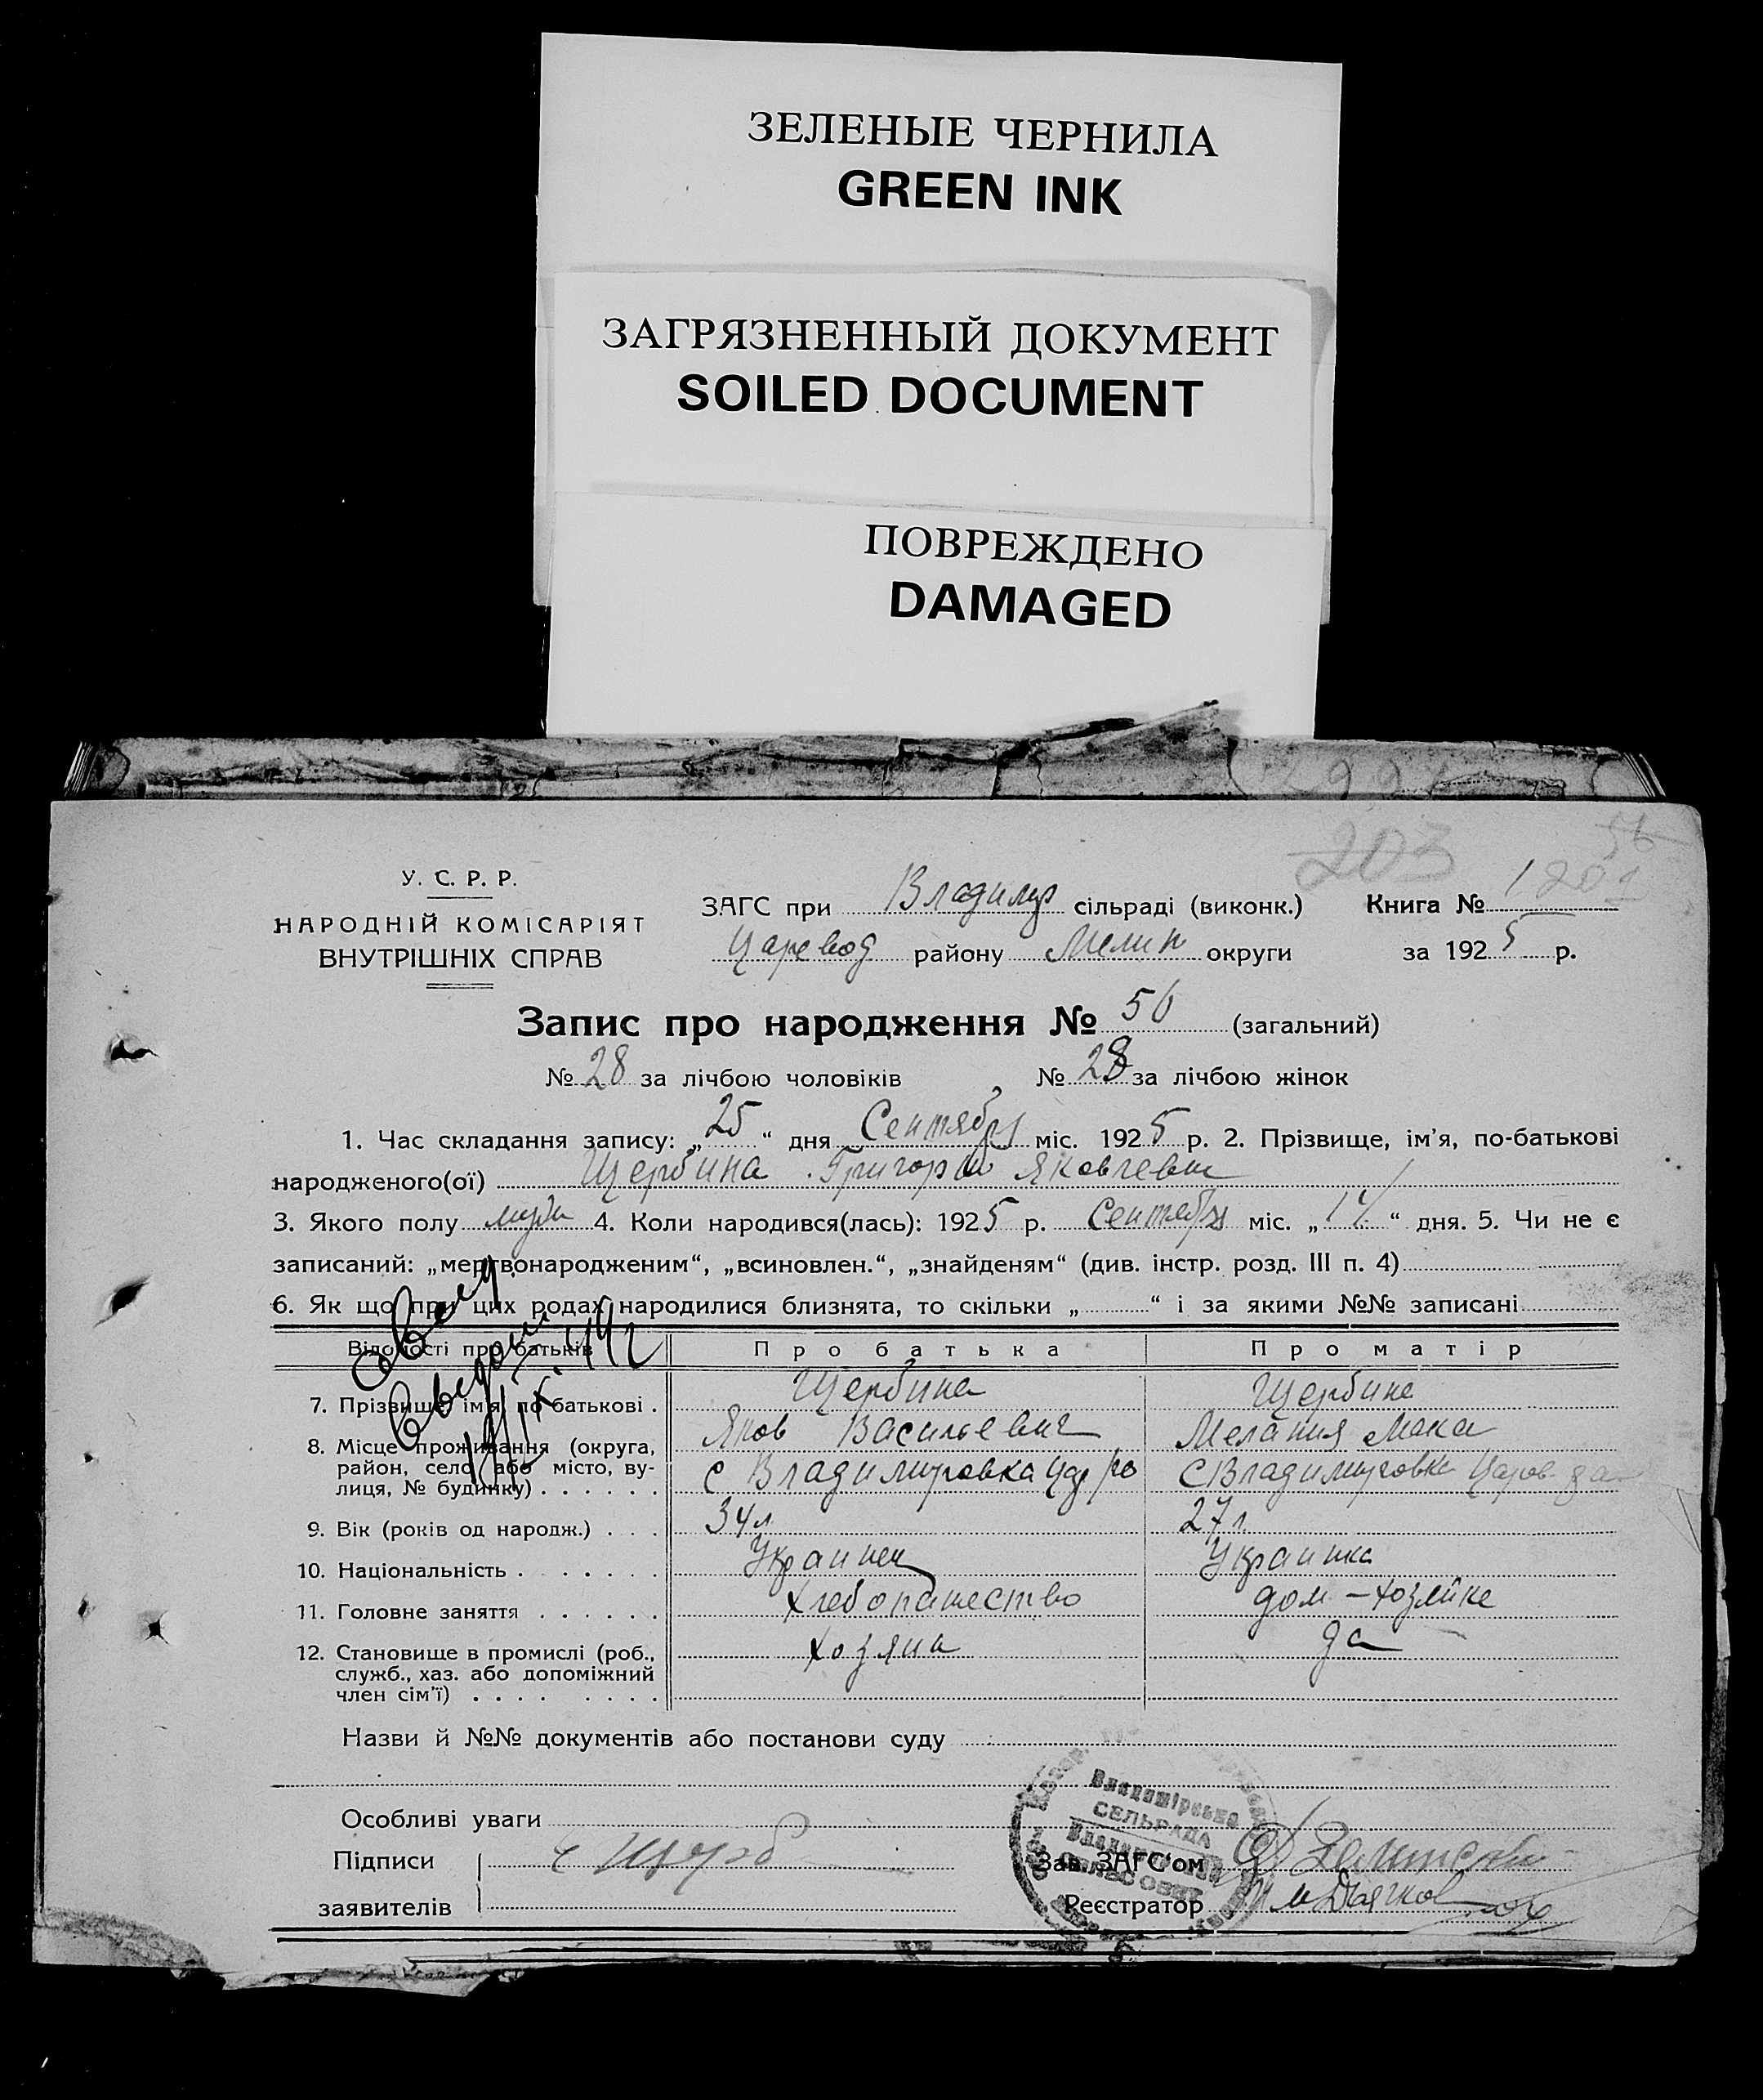 ЗЕЛЕНЫЕ ЧЕРНИЛА
GREEN INK
ЗАГРЯЗНЕННЫЙ ДОКУМЕНТ
SOILED DOCUMENT
ПОВРЕЖДЕНО
DAMAGED
203 56
У. С. Р. Р.
НАРОДНІЙ КОМІСАРІЯТ
ВНУТРІШНІХ СПРАВ
ЗАГС при Владимир сільраді (виконк.) Книга № 1
Царевод району Мелит округи за 1925 р.
Запис про народження № 56 (загальний)
№ 28 за лічбою чоловіків № 28 за лічбою жінок
1. Час складання запису: „25“ дня Сентября міс. 1925 р. 2. Прізвище, ім’я, по-батькові
народженого(ої) Щербина Григорий Яковлевич
3. Якого полу муж 4. Коли народився(лась): 1925 р. Сентября міс. „14“ дня. 5. Чи не є
записаний: „мертвонародженим“, „всиновлен.“, „знайденям“ (див. інстр. розд. III п. 4)
6. Як що при цих родах народилися близнята, то скільки „ “ і за якими №№ записані
Відомості про батьків Про батька Про матір
7. Прізвище, ім’я, по-батькові . Щербина Щербина
Яков Васильевич Мелания Мака
8. Місце проживання (округа, район, село або місто, вулиця, № будинку) с Владимировка Цар ро с Владимировка Царов
9. Вік (років од народж.) 34 л 27 л
10. Національність Украинец Украинка
11. Головне заняття Хлебопашество дом – хозяйка
12. Становище в промислі (роб., служб., хаз. або допоміжний член сім’ї) хозяин да
Назви й №№ документів або постанови суду
Особливі уваги
Владимірська
СЕЛЬРАДА
Підписи Зав. ЗАГС’ом
заявителів Реєстратор